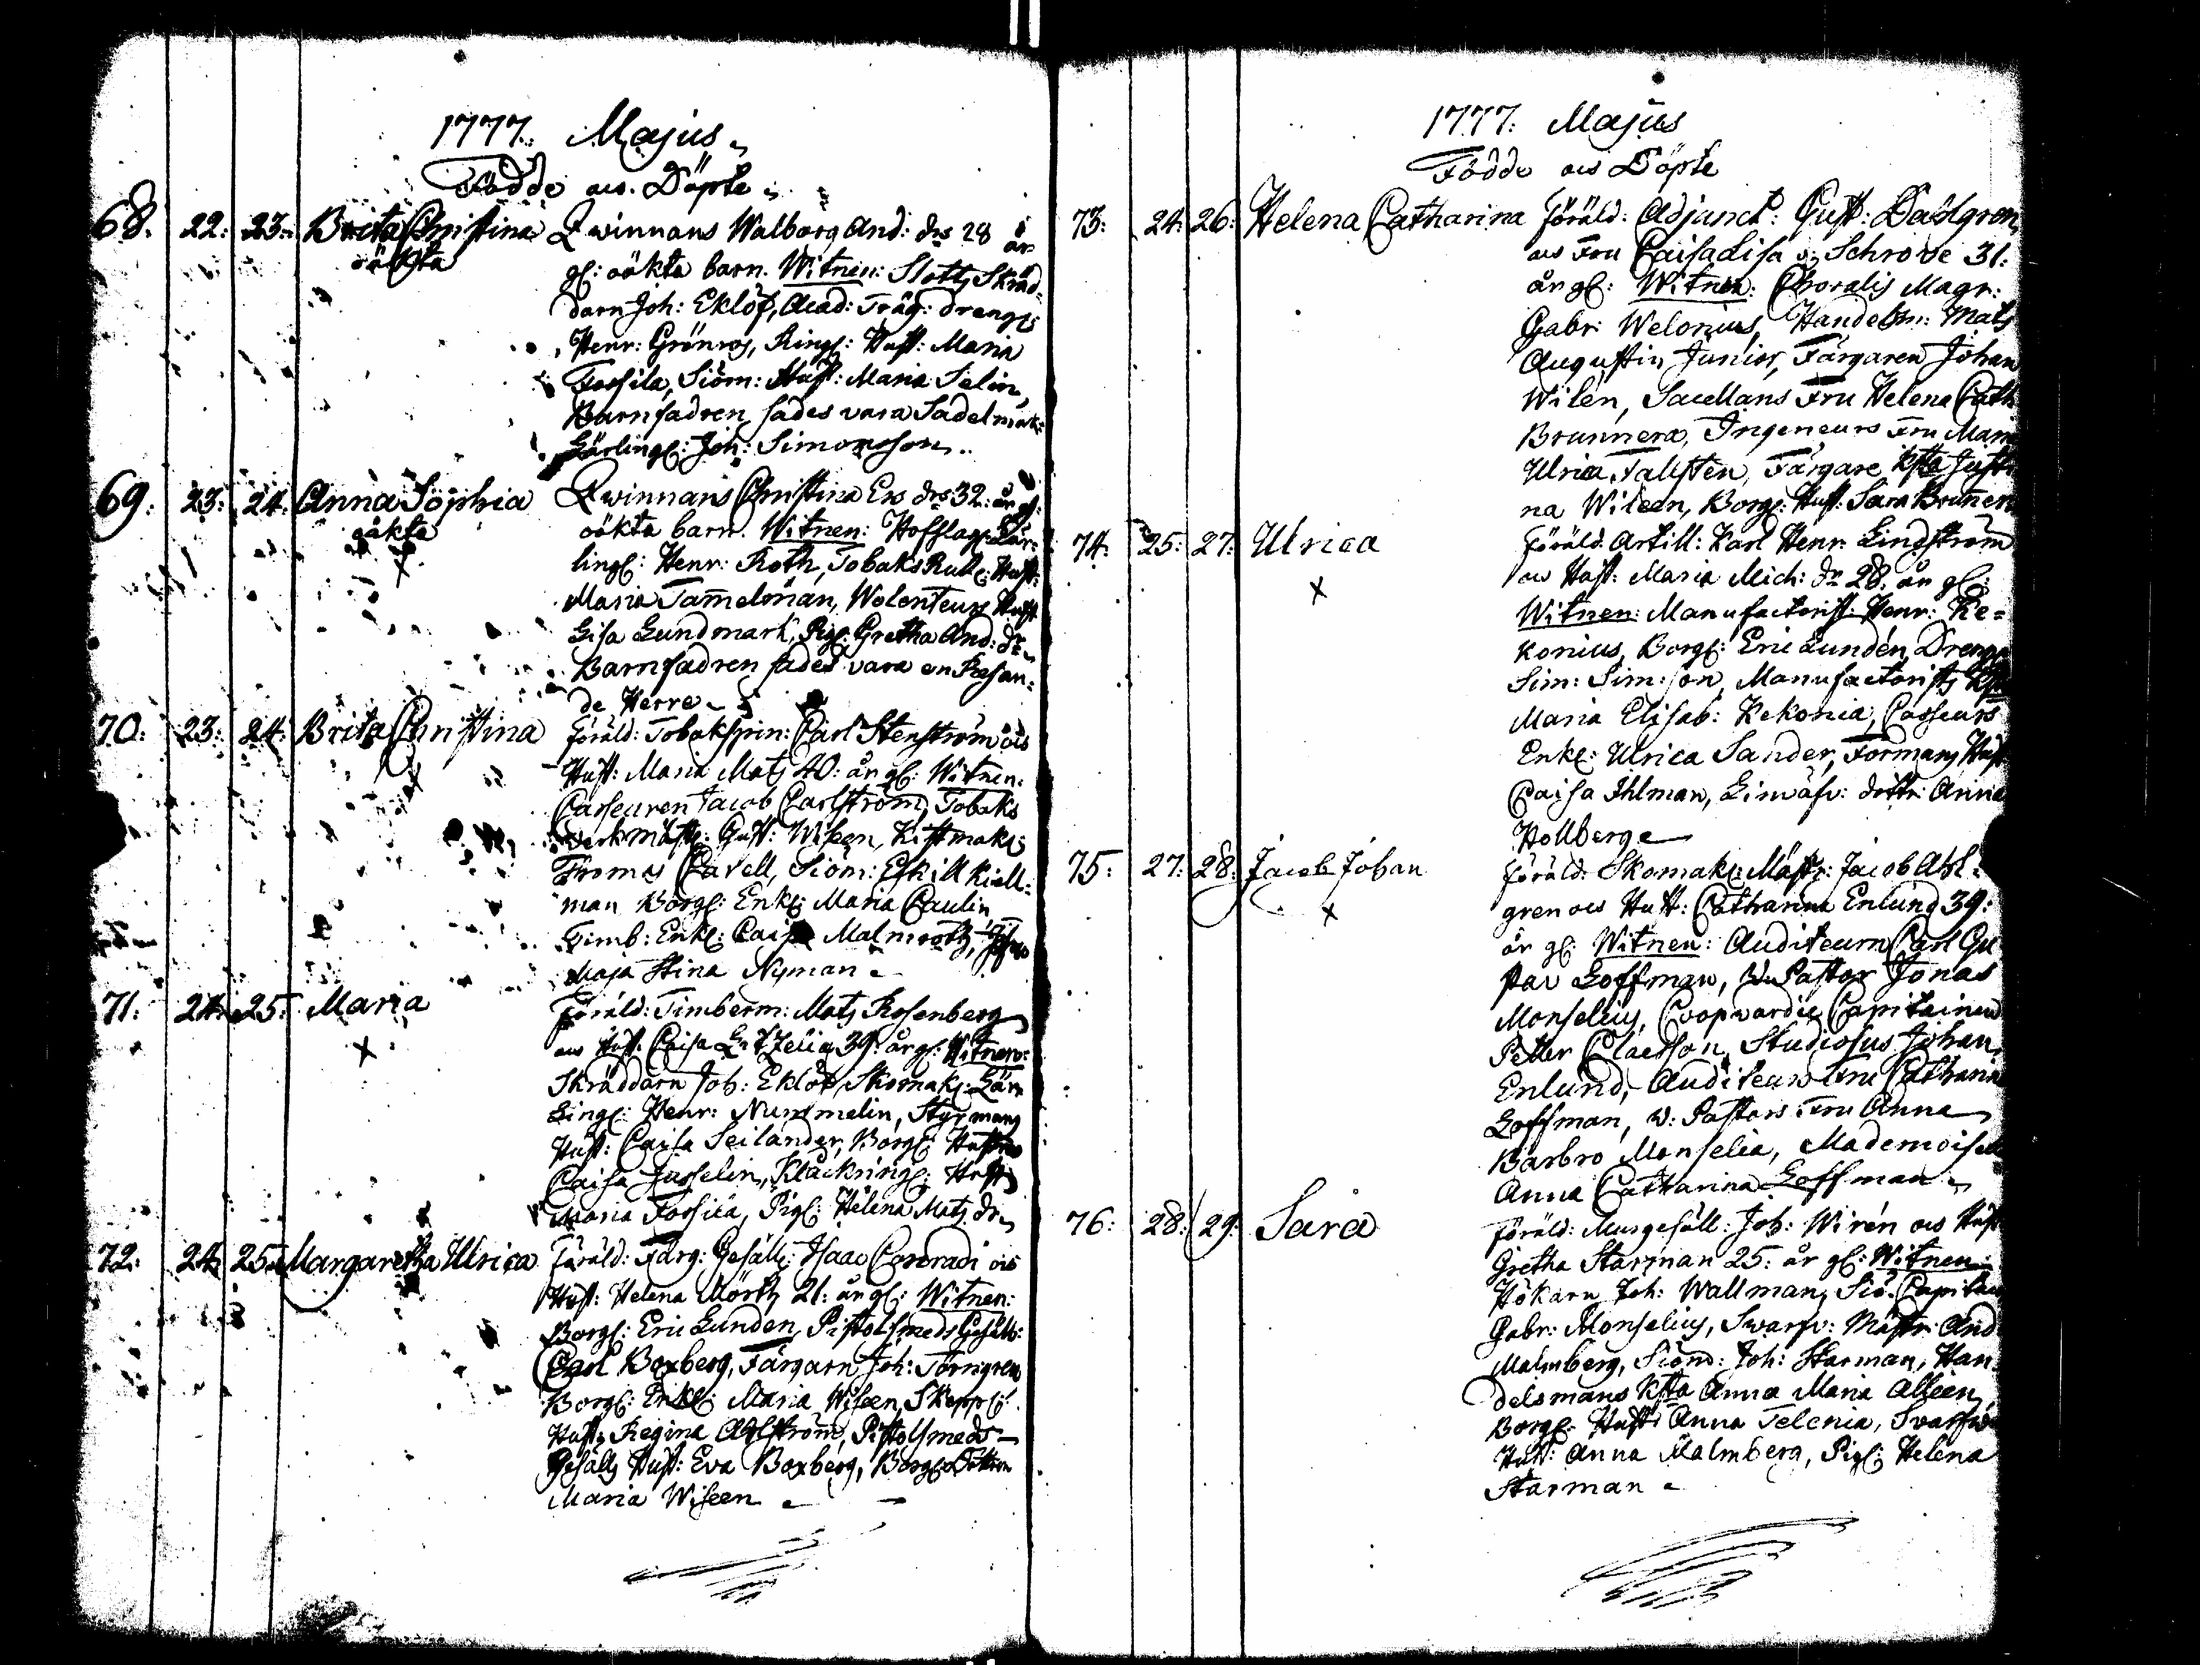 1777. Majus
Födde och Döpte
68. 22: 23: Brita Christina Qwinnans Walborg And: drs 28 år
oäkta gl: oäkta barn. Witnen: Slotts Skräd-
darn Joh: Eklöf, Acad: Träg: drengs
Henr: Grönros, Ringk: Hust: Maria
Forsila, Siöm: Hust: Maria Selin,
Barnfadren sades vara Sadelmak:
Lärlingk: Joh: Simonsson.
69. 23: 24: Anna Sophia Qwinnans Christina Ers drs 32: år gl:
oäkta oäkta barn. Witnen: Hofslag: Lär-
x lingk: Henr: Roth, Tobaks Hust:
Maria Tammelinan, Wolenteurs Hust
Lisa Lundmark, Pig: Gretha And: dr
Barnfadren sades vara en Resan-
de Herre
70: 23: 24: Brita Christina Föräld: Tobakspin: Carl Stenström och
x Hust: Maria Mats 40: år gl: Witnen:
Casseuren Jacob Carlström, Tobaks
werkmäst: Gust: Wiseen, Kistmak:
Tromas Cavell, Siöm: Eskill Kiell-
man Borg: Enk: Maria Paulin
Timb: Enk: Caisa Malmroth, Jfru
Maja Stina Nyman
71: 24: 25: Maria Föräld: Timberm: Mats Rosenberg
x och Hust: Caisa 39: år gl: Witnen:
Skräddarn Joh: Eklöf, Skomak: Lär
Lingk: Henr: Nummelin, Styrmans
Hust: Caisa Seilander, Borg: Hustru
Caisa Jusselin, Klåckringk: Hust
Maria Forsila, Pig: Helena Mats dr
72: 24: 25: Margaretha Ulrica Föräld: Färg: Gesäll: Isaac Conradi och
Hust: Helena Mörtz 21: år gl: Witnen:
Borg: Eric Lunden, Pistolsmeds Gesäll:
Carl Boxberg, Färgarn Joh: Törngren
Borg: Enk: Maria Wiseen, Skepp:
Hust: Regina Ahlström, Pistolsmeds
Gesälls Hust: Eva Boxberg, Borg: Dottren
Maria Wiseen
1777: Majus
Födde och Döpte
73: 24: 26: Helena Catharina Föräld: Adjunct: Gust: Dahlgren,
och Fru Caisa Lisa v: Schrowe 31:
år gl: Witnen: Choralis Magr:
Gabr: Welonius, Handelsm: Mats
Augustin Junior, Färgaren Johan
Wilen, Sacellans Fru Helena Cath
Brunnera, Ingeneurs Fru Mam
Ulrica Falsten, Färgare Justi
na Wileen, Borg: Hust: Sara Brunnera
74: 25: 27: Ulrica Föräld: Artill: Karl Henr: Lindström
x och Hust: Maria Mich: dr 28: år gl:
Witnen: Manufactorist: Henr: Ke-
konius, Borg: Eric Lundén, Dreng
Sim: Sim:son, Manufactorists
Maria Elisab: Kekonia, Casseurs
Enk: Ulrica Sander, Formans Hust
Caisa Ihlman, Linwäfv: dottr: Anna
Hollberg
75: 27: 28: Jacob Johan Föräld: Skomak: Mäst: Jacob Ahl-
x gren och Hust: Catharina Enlund 39:
år gl: Witnen: Auditeurn Carl Gu
stav Goffman, V. Pastor Jonas
Monselius, Coopvardie Capitainen
Petter Claesson, Studiosus Johan
Enlund, Auditeurs Fru Catharina
Goffman, V: Pastors Fru Anna
Barbro Monselia, Mademoisell
Anna Catharina Goffman
76: 28: 29: Sara Föräld: Murgesäll: Joh: Wirén och Hust
Gretha Starman 25: år gl: Witnen:
Hökarn Joh: Wallman, Siö: Capitain
Gabr: Monselius, Swarfv: Mästr: And
Malmberg, Siöm: Joh: Starman, Han
delsmans Anna Maria Alleen,
Borg: Hust: Anna Telenia, Svarfv
Hust: Anna Malmberg, Pig: Helena
Starman